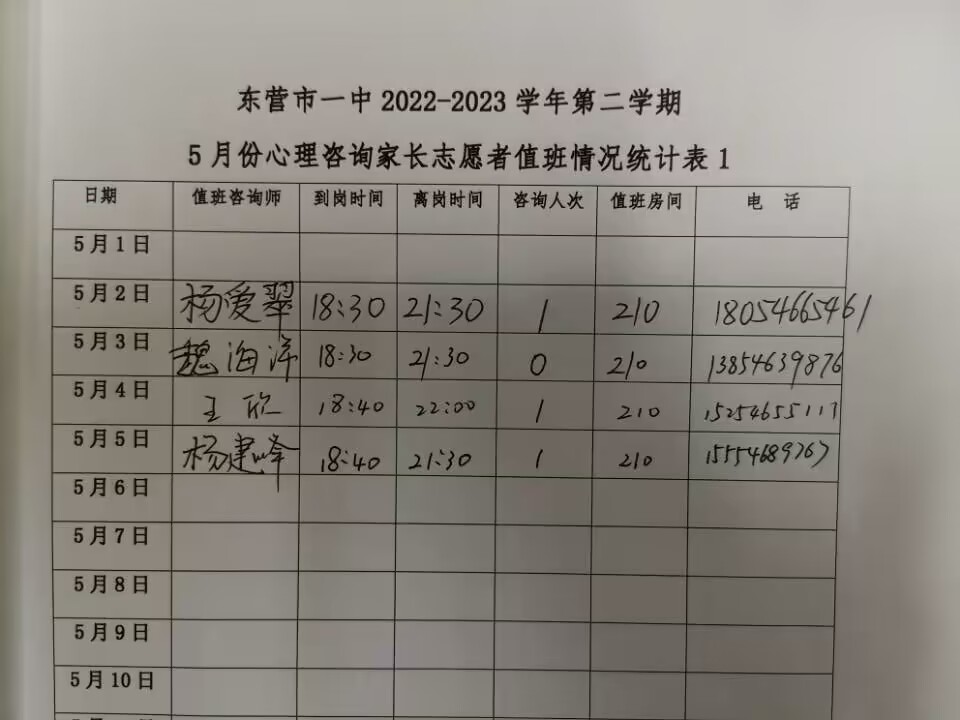 东营市一中 2022-2023 学年第二学期
5 月份心理咨询家长志愿者值班情况统计表 1
日期 值班咨询师 到岗时间 离岗时间 咨询人次 值班房间 电 话
5 月 1 日
5 月 2 日 杨爱翠 18:30 21:30 1 210 18054665461
5 月 3 日 魏海洋 18:30 21:30 0 210 13854639876
5 月 4 日 王欣 18:40 22:00 1 210 15254655117
5 月 5 日 杨建峰 18:40 21:30 1 210 15554689767
5 月 6 日
5 月 7 日
5 月 8 日
5 月 9 日
5 月 10 日